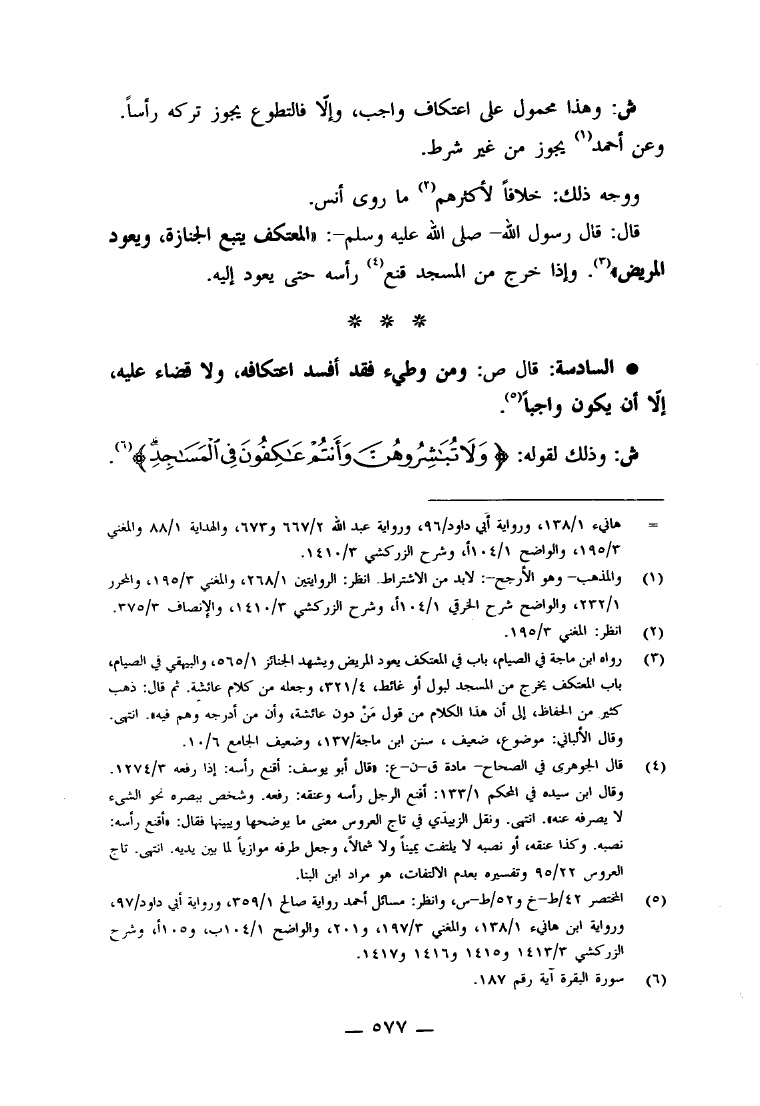 ش: وهذا محمول على اعتكاف واجب، وإلّا فالتطوع يجوز تركه رأساً.
وعن أحمد(١) يجوز من غير شرط.
ووجه ذلك: خلافاً لأكثرهم(٢) ما روى أنس.
قال: قال رسول الله– صلى الله عليه وسلم–: «المعتكف يتبع الجنازة، ويعود
المريض»(٣). وإذا خرج من المسجد قنع(٤) رأسه حتى يعود إليه.
* * *
● السادسة: قال ص: ومن وطيء فقد أفسد اعتكافه، ولا قضاء عليه،
إلّا أن يكون واجباً(٥).
ش: وذلك لقوله: ﴿ وَلَا تُبَٰشِرُوهُنَّ وَأَنتُمْ عَٰكِفُونَ فِي ٱلْمَسَٰجِدِ ﴾(٦).
= هانيء ١٣٨/١، ورواية أبي داود/٩٦، ورواية عبد الله ٦٦٧/٢ و٦٧٣، والهداية ٨٨/١ والمغني
١٩٥/٣، والواضح ١٠٤/١أ، وشرح الزركشي ١٤١٠/٣.
(١) والمذهب– وهو الأرجح–: لابد من الاشتراط. انظر: الروايتين ٢٦٨/١، والمغني ١٩٥/٣، والمحرر
٢٣٢/١، والواضح شرح الخرقي ١٠٤/١أ، وشرح الزركشي ١٤١٠/٣، والإنصاف ٣٧٥/٣.
(٢) انظر: المغني ١٩٥/٣.
(٣) رواه ابن ماجة في الصيام، باب في المعتكف يعود المريض ويشهد الجنائز ٥٦٥/١، والبيهقي في الصيام،
باب المعتكف يخرج من المسجد لبول أو غائط، ٣٢١/٤، وجعله من كلام عائشة. ثم قال: ذهب
كثير من الحفاظ، إلى أن هذا الكلام من قول مَنْ دون عائشة، وأن من أدرجه وهم فيه». انتهى.
وقال الألباني: موضوع، ضعيف ، سنن ابن ماجة/١٣٧، وضعيف الجامع ١٠/٦.
(٤) قال الجوهرى في الصحاح– مادة ق–ن–ع: «قال أبو يوسف: أقنع رأسه: إذا رفعه ١٢٧٤/٣.
وقال ابن سيده في المحكم ١٣٣/١: أقنع الرجل رأسه وعنقه: رفعه. وشخص ببصره نحو الشيء
لا يصرفه عنه». انتهى. ونقل الزبيدّي في تاج العروس معنى ما يوضحها ويبينها فقال: «أقنع رأسه:
نصبه. وكذا عنقه، أو نصبه لا يلتفت يميناً ولا شمالاً، وجعل طرفه موازياً لما بين يديه. انتهى. تاج
العروس ٩٥/٢٢ وتفسيره بعدم الالتفات، هو مراد ابن البنا.
(٥) المختصر ٤٢/ط–خ و٥٢/ط–س، وانظر: مسائل أحمد رواية صالح ٣٥٩/١، ورواية أبي داود/٩٧،
ورواية ابن هانيء ١٣٨/١، والمغني ١٩٧/٣، و٢٠١، والواضح ١٠٤/١ب، و١٠٥أ، وشرح
الزركشي ١٤١٣/٣ و١٤١٥ و١٤١٦ و١٤١٧.
(٦) سورة البقرة آية رقم ١٨٧.
— ٥٧٧ —